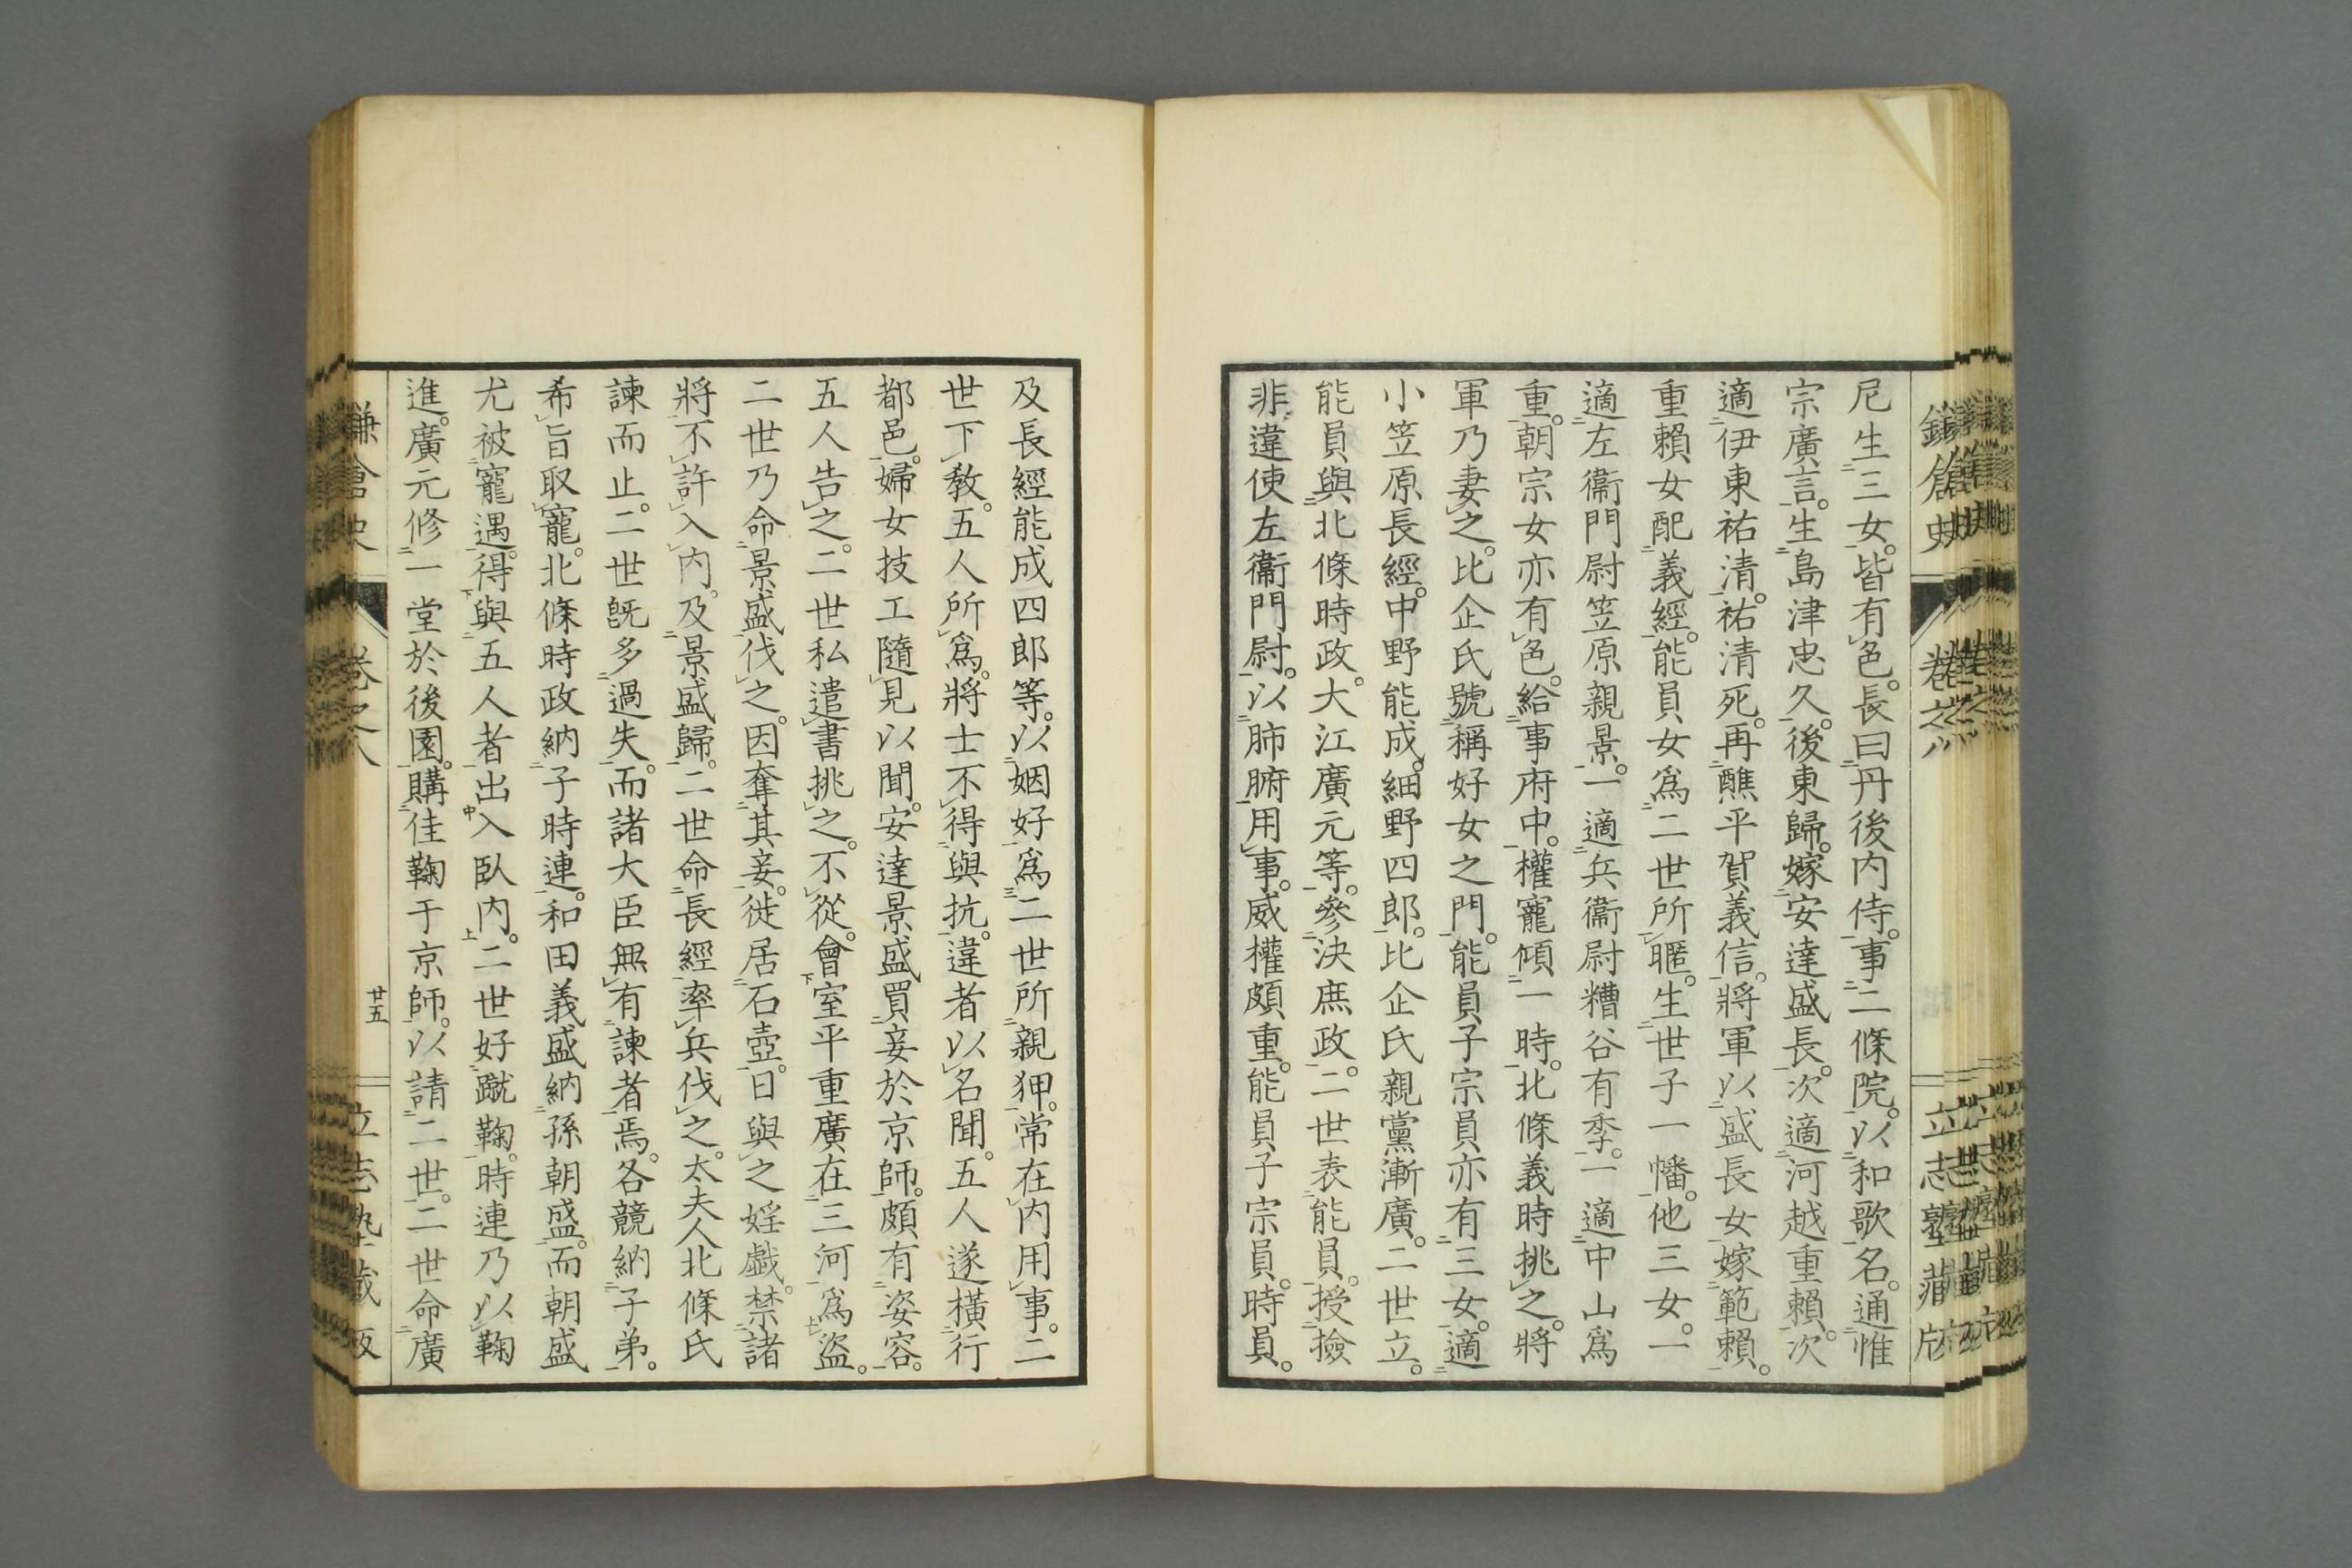 尼生三女。皆有色。長曰丹後内侍。事二條院。以和歌名。通惟
宗廣言。生島津忠久。後東歸。嫁安達盛長。次適河越重賴。次
適伊東祐清。祐清死。再醮平賀義信。將軍以盛長女嫁範賴。
重賴女配義經。能員女爲二世所暱。生世子一幡。他三女。一
適左衞門尉笠原親景。一適兵衞尉糟谷有季。一適中山爲
重。朝宗女亦有色。給事府中。權寵傾一時。北條義時挑之。將
軍乃妻之。比企氏號稱好女之門。能員子宗員亦有三女。適
小笠原長經。中野能成。細野四郎。比企氏親黨漸廣。二世立。
能員與北條時政。大江廣元等。參決庶政。二世表能員。授撿
非違使左衞門尉。以肺腑用事。威權頗重。能員子宗員。時員。
及長經能成四郎等。以姻好爲二世所親狎。常在内用事。二
世下教。五人所爲。將士不得與抗。違者以名聞。五人遂橫行
都邑。婦女技工隨見以聞。安達景盛買妾於京師。頗有姿容。
五人告之。二世私遣書挑之。不從。會室平重廣在三河爲盜。
二世乃命景盛伐之。因奪其妾。徙居石壺。日與之婬戯。禁諸
將不許入内。及景盛歸。二世命長經率兵伐之。太夫人北條氏
諫而止。二世旣多過失。而諸大臣無有諫者焉。各競納子弟。
希旨取寵。北條時政納子時連。和田義盛納孫朝盛。而朝盛
尤被寵遇。得與五人者出入臥内。二世好蹴鞠。時連乃以鞠
進。廣元修一堂於後園。購佳鞠于京師。以請二世。二世命廣
鎌倉史 卷之八 廿五 立志塾藏版